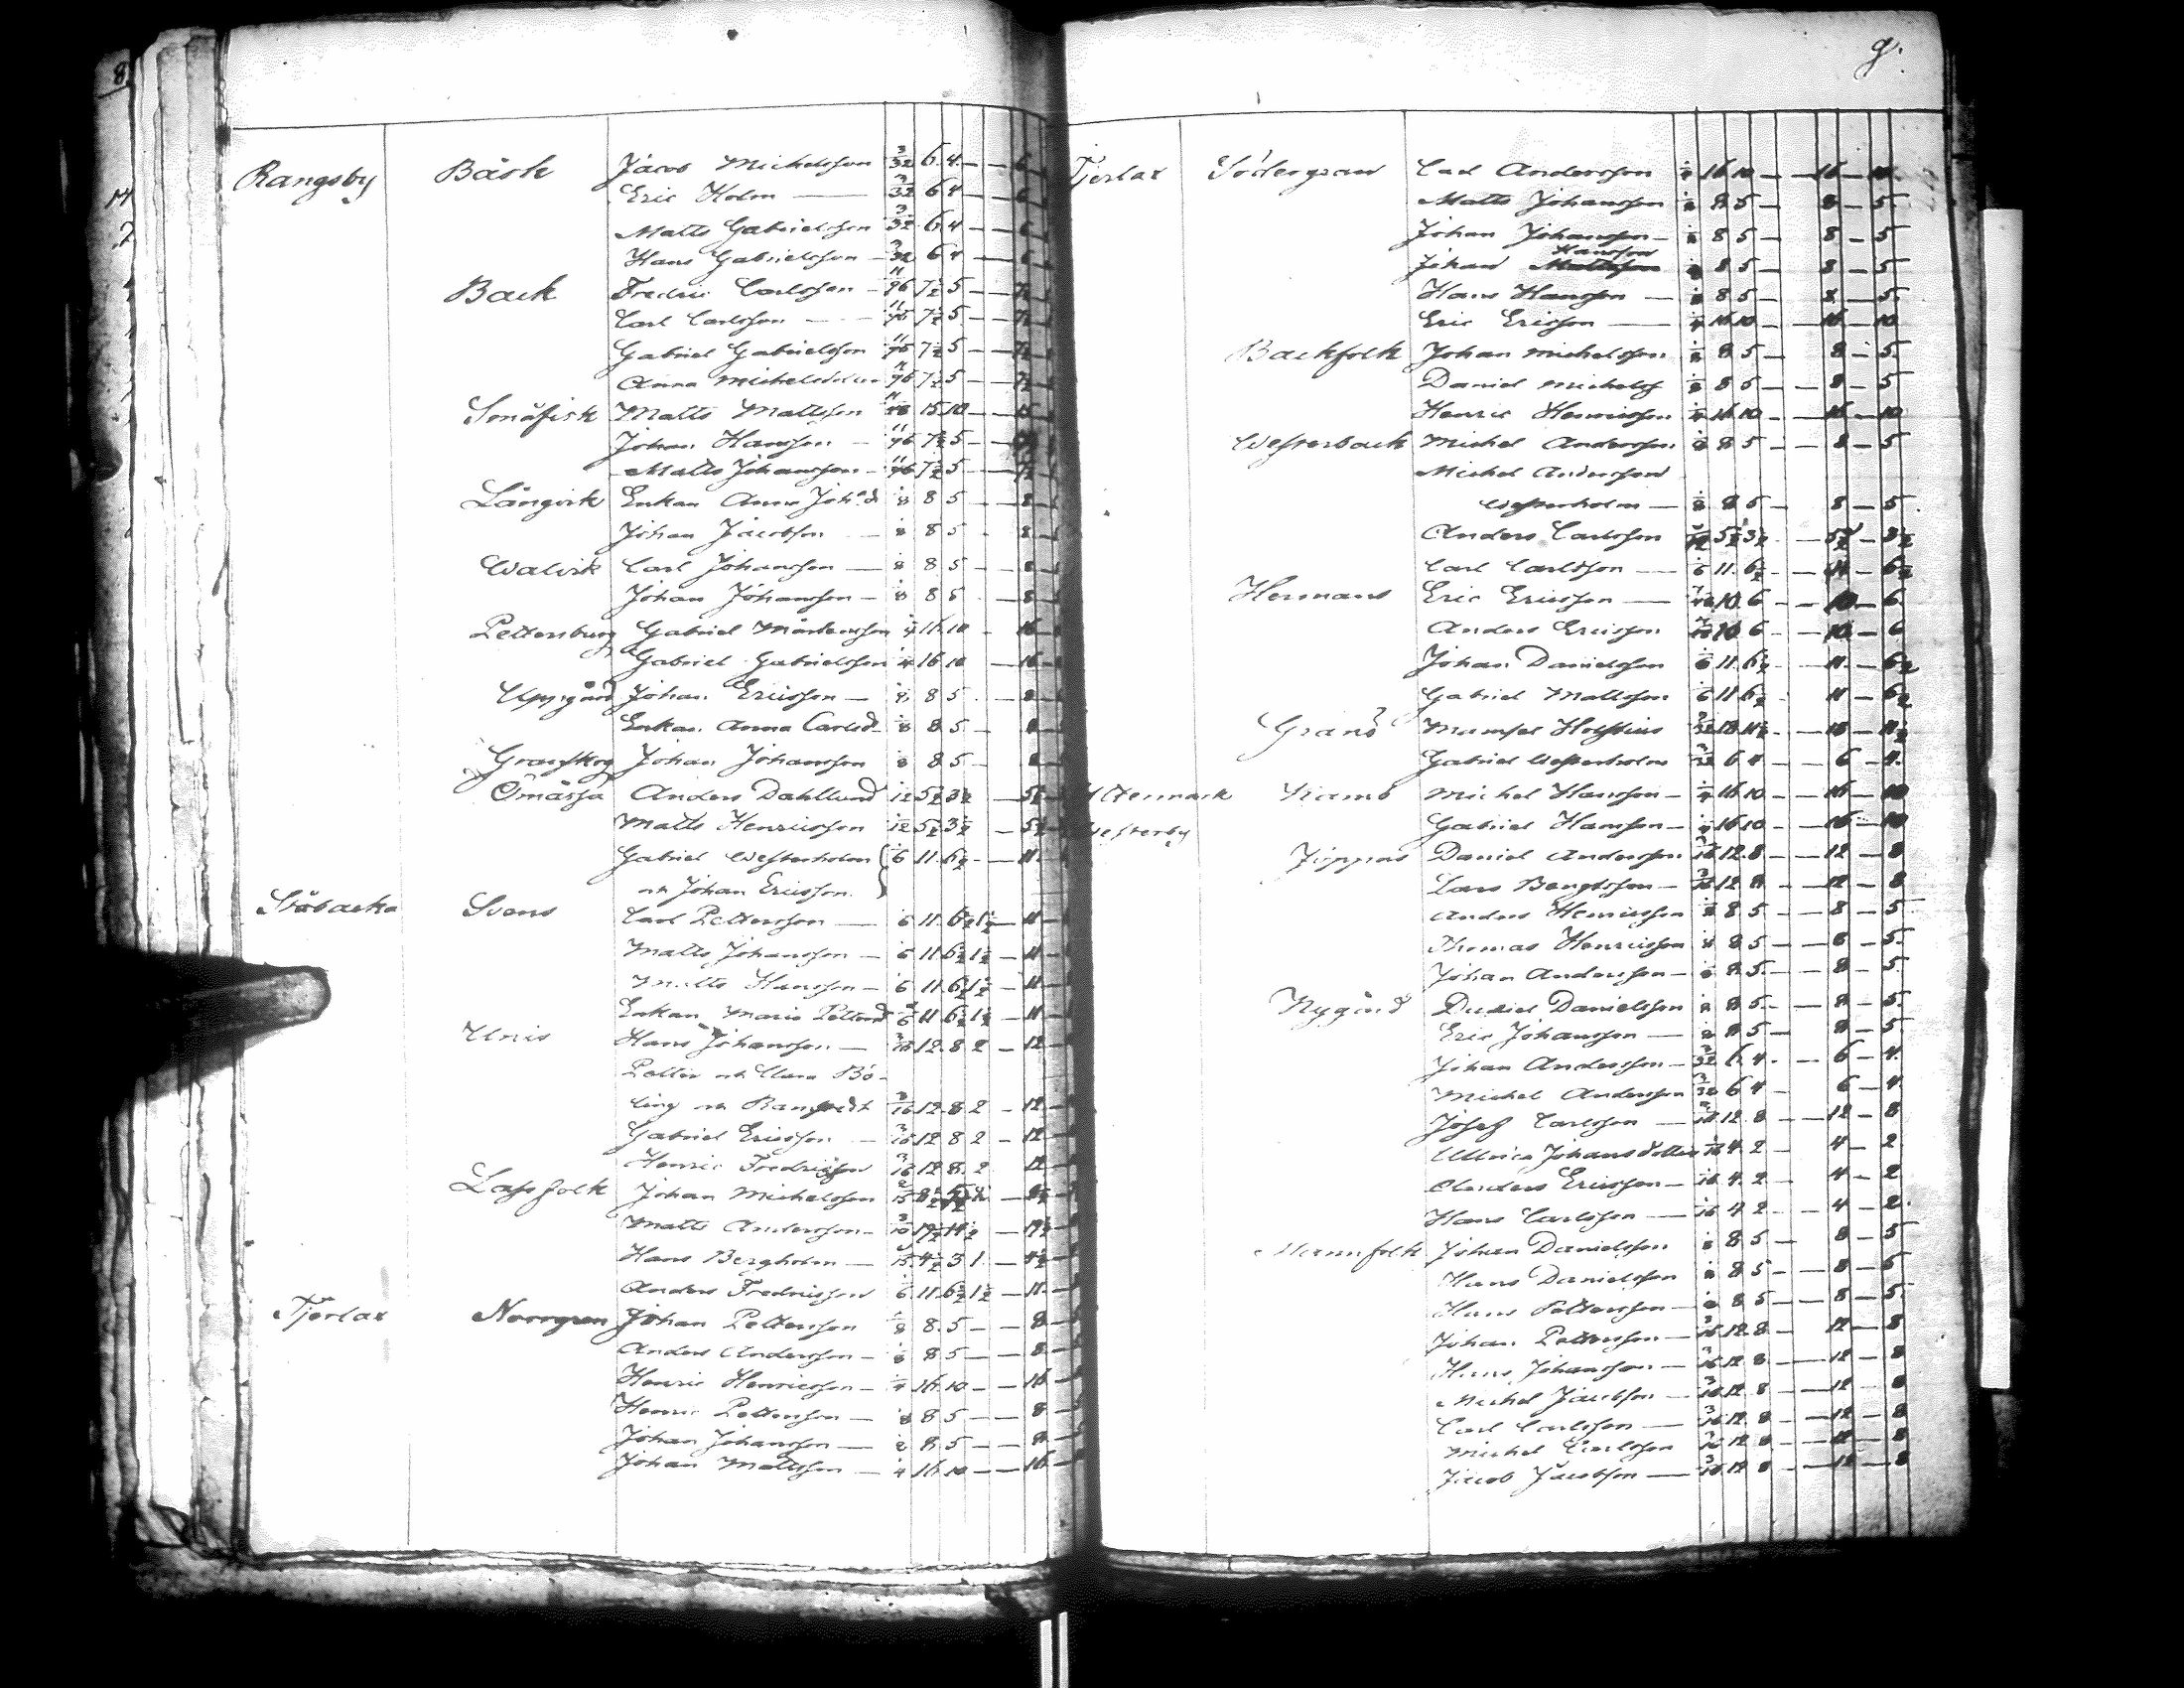 8
9.
Rangsby Bäsk Jacob Michelsson 3/32 6 4 — — 6
Eric Holm — 3/32 6 4 — — 6
Matts Gabrielsson 3/32 6 4 — — 6
Hans Gabrielsson 3/32 6 4 — 6
Back Fredric Carlsson 11/96 7½ 5 — — 7½
Carl Carlsson — 11/96 7½ 5 — — 7½
Gabriel Gabrielsson 11/96 7½ 5 — — 7½
Anna Michelsdotter 11/96 7½ 5 — — 7½
Smäfisk Matts Mattsson 11/48 15 10 — — 15
Johan Hansson — 11/96 7½ 5 —
Matts Johansson — 11/96 7½ 5 — — 7½
Långvik Enkan Anna Joh:d 1/8 8 5 — — 8
Johan Jacobsson — 1/8 8 5 - 8
Walvik Carl Johansson — 1/8 8 5 — 8
Johan Johansson — 1/8 8 5 — 8
Pettersburg Gabriel Mårtensson 1/4 16 10 - 16
Gabriel Gabrielsson 1/4 16 10 — 16
Uppgård Johan Ericsson — 1/8 8 5 - 8
Enkan Anna Carlsd 1/8 8 5 - 8
Granskog Johan Johansson 1/8 8 5 - 8
Ömässa Anders Dahllund 1/12 5½ 3½ — 5½
Matts Henricsson 1/12 5½ 3½ — 5½
Gabriel Westerholm 1/6 11 6½ — 11
och Johan Ericsson
Ståbacka Svens Carl Pettersson — 1/6 11 6½ 1½ — 11
Matts Johansson — 1/6 11 6½ 1½ — 11
Matts Hansson — 1/6 11 6½ 1½ — 11
Enkan Maria Pettersd 1/6 11 6½ 1½ — 11
Unis Hans Johansson — 3/16 12 8 2 — 12
Petter och Clara Bö-
ling och 3/16 12 8 2 — 12
Gabriel Ericsson — 3/16 12 8 2 — 12
Henric Fredricsson 3/16 12 8 2 12
Lassfolk Johan Michelsson
Matts Andersson —
Hans Bergholm — 4½ 3 1 — 4½
Anders Fredricsson 1/6 11 6½ 1½ — 11
Tjerlax Norrgran Johan Pettersson 1/8 8 5 — 8
Anders Andersson — 1/8 8 5 — — 8
Henric Henricsson — 1/4 16 10 — — 16
Henric Pettersson — 1/8 8 5 — — 8
Johan Johansson — 1/8 8 5 — — 8
Johan Mattsson — 1/4 16 10 — — 16
Tjerlax Södergran Carl Andersson 1/4 16 10 — — 16 — 10
Matts Johansson 1/8 8 5 — 8 — 5
Johan Johansson — 1/8 8 5 — 8 — 5
Hansson
Johan Mattsson 1/8 8 5 — 8 — 5
Hans Hansson — 1/8 8 5 — 8 — 5
Eric Ericsson — 1/4 16 10 — 16 — 10
Backfolk Johan Michelsson 1/8 8 5 — 8 — 5
Daniel Michelss 1/8 8 5 — — 8 — 5
Henric Henricsson 1/4 16 10 — — 16 — 10
Westerback Michel Andersson 1/8 8 5 — — 8 — 5
Michel Andersson
Westerholm — 1/8 8 5 — 8 — 5
Anders Carlsson 1/12 5½ 3½ — 5½ — 3½
Carl Carlsson — 1/6 11 6½ — 11 — 6½
Hermans Eric Ericsson — 10 6 — — 10 — 6
Anders Ericsson 10 6 — — 10 — 6
Johan Danielsson 1/6 11 6½ — 11 — 6½
Gabriel Mattsson 1/6 11 6½ — 11 — 6½
Gränd Mamsel Holstius 9/32 18 11½ — 18 — 11½
Gabriel Westerholm 3/32 6 4 — 6 — 4
Westerby Michel Hansson — 1/4 16 10 — — 16 — 10
Gabriel Hansson — 1/4 16 10 — — 16 — 10
Daniel Andersson 3/16 12 8 — — 12 — 8
Lars Bengtsson — 3/16 12 8 — — 12 — 8
Anders Henricsson 1/8 8 5 — — 8 — 5
Thomas Henricsson 1/8 8 5 — — 8 — 5
Johan Andersson — 1/8 8 5 — — 8 — 5
Nygård Daniel Danielsson 1/8 8 5 — — 8 — 5
Eric Johansson — 1/8 8 5 — 8 — 5
Johan Andersson — 3/32 6 4 — 6 — 4
Michel Andersson 3/32 6 4 — 6 — 4
Josef Carlsson — 3/16 12 8 — — 12 — 8
Ullrica Johansdotter 1/16 4 2 4 — 2
Anders Ericsson — 1/16 4 2 — 4 — 2
Hans Carlsson — 1/16 4 2 — 4 — 2
Mannfolk Johan Danielsson 1/8 8 5 — 8 — 5
Hans Danielsson 1/8 8 5 — — 8 — 5
Hans Pettersson — 1/8 8 5 — — 8 — 5
Johan Pettersson — 3/16 12 8 — 12 — 8
Hans Johansson — 3/16 12 8 — — 12 — 8
Michel Jacobsson — 3/16 12 8 — — 12 8
Carl Carlsson — 3/16 12 8 — — 12 — 8
Michel Carlsson 3/16 12 8 — — 12 — 8
Jacob Jacobsson — 3/16 12 8 — — 12 — 8